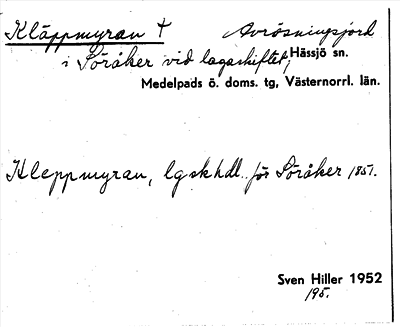 Kläppmyran † Avrösningsjord
i Söråker vid lagaskiftet, Hässjö sn.
Medelpads ö. doms. tg, Västernorrl. län.
Kleppmyran, lgskhdl. för Söråker 1851.
Sven Hiller 1952
195.